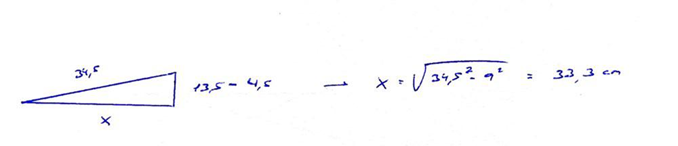 34,5
13,5 - 4,5 → x = √34,5² - 9² = 33,3 cm
x